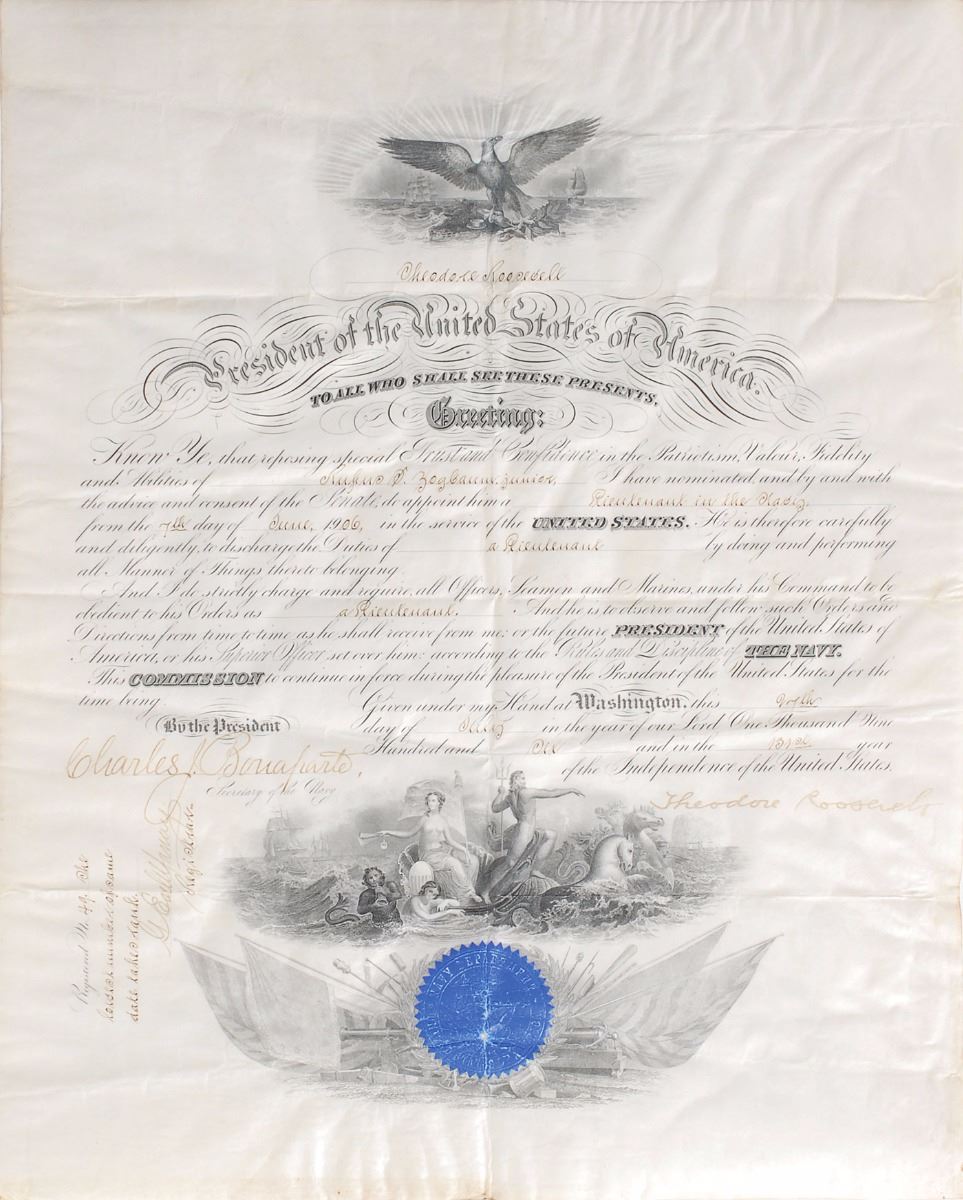 Theodore Roosevelt
President of the United States of America.
TO ALL WHO SHALL SEE THESE PRESENTS,
Greeting:
Know Ye, that reposing special Trust and Confidence in the Patriotism, Valour, Fidelity
and Abilities of Rufus F. Zogbaum, junior, I have nominated, and by and with
the advice and consent of the Senate, do appoint him a Lieutenant in the Navy
from the 7th day of June, 1906, in the service of the UNITED STATES. He is therefore carefully
and diligently, to discharge the Duties of a Lieutenant by doing and performing
all Manner of Things thereto belonging.
And I do strictly charge and require, all Officers, Seamen and Marines, under his Command to be
obedient to his Orders as a Lieutenant. And he is to observe and follow such Orders and
Directions from time to time as he shall receive from me; or the future PRESIDENT of the United States of
America, or his Superior Officer set over him: according to the Rules and Discipline of THE NAVY.
This COMMISSION to continue in force during the pleasure of the President of the United States for the
time being.
Given under my Hand at Washington, this
day of July in the year of our Lord One Thousand Nine
Hundred and Six and in the 131st year
of the Independence of the United States.
By the President
Charles J. Bonaparte,
Secretary of the Navy
Theodore Roosevelt
Registered No. 49. The
lowest number of same
date takes rank.
NAVY DEPARTMENT